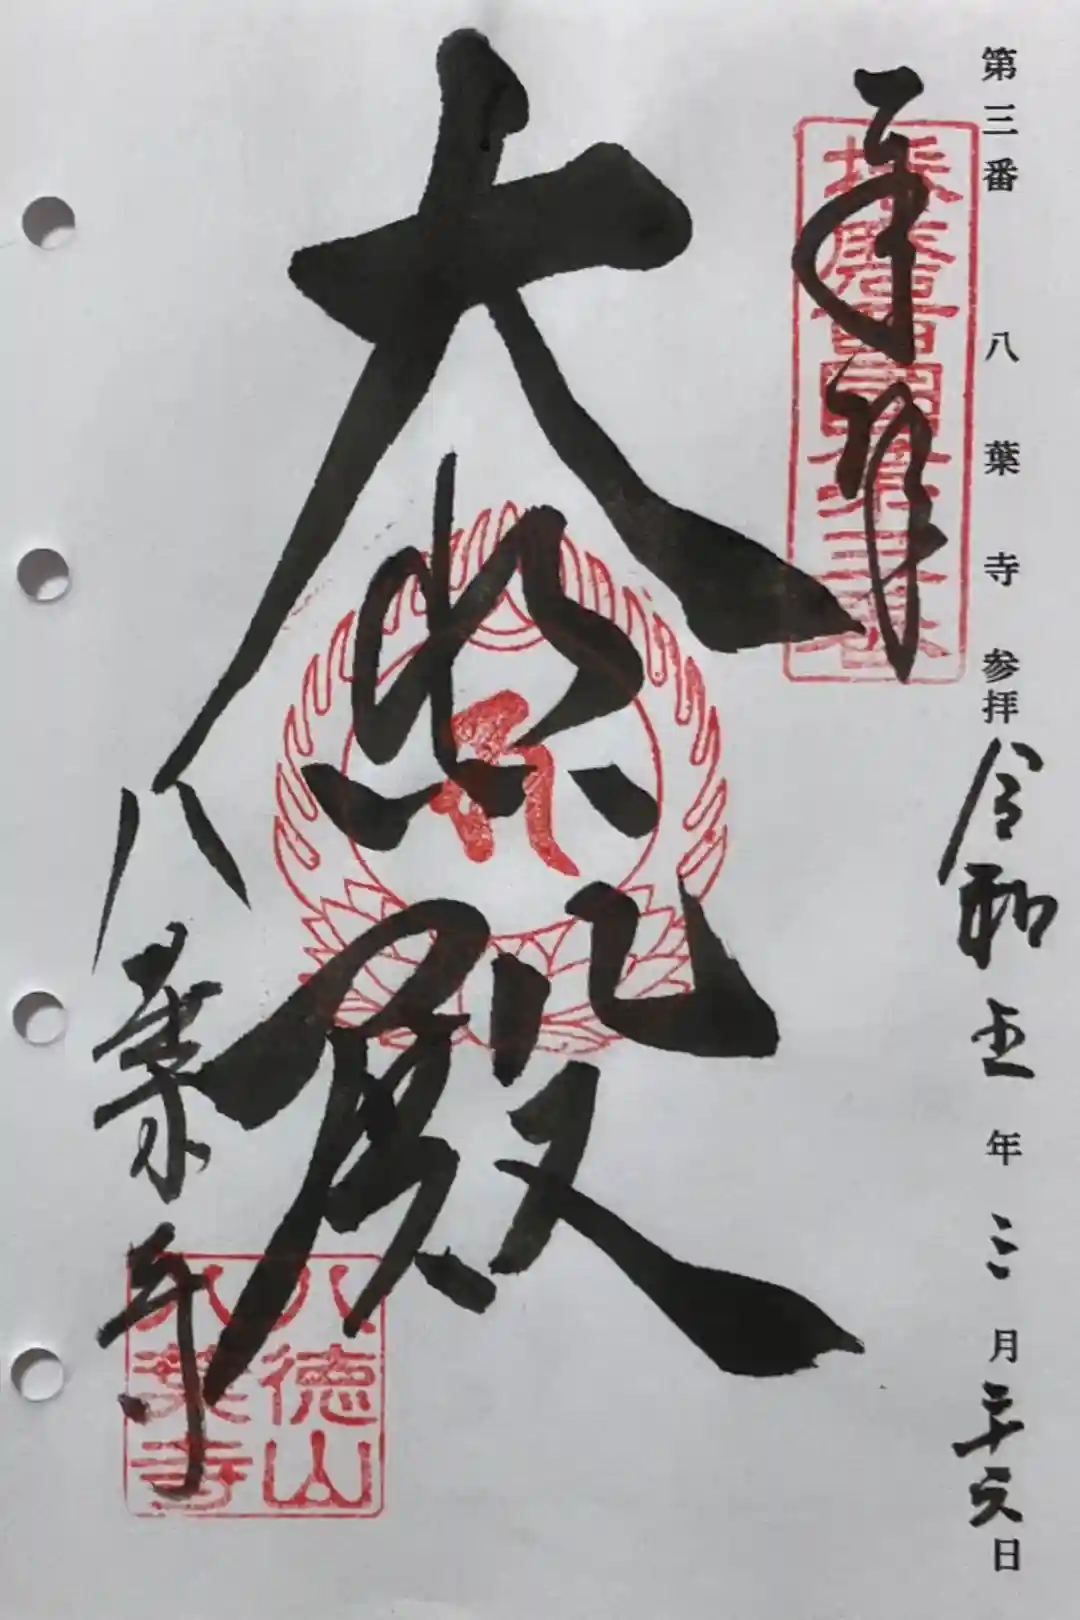 第三番 八葉寺 参拝 令和五年三月二十六日
奉拝
播磨西国第三番
大悲殿
八葉寺
八徳山
八葉寺